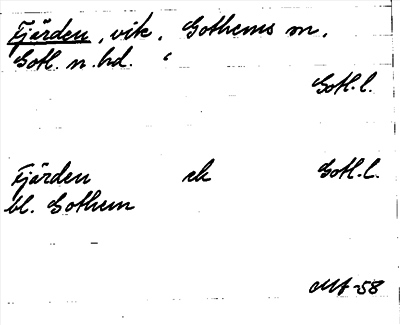 Fjärden, vik, Gothems sn,
Gotl. n. hd.
Gotl. l.
Fjärden ek Gotl. l.
bl. Gothem
-58